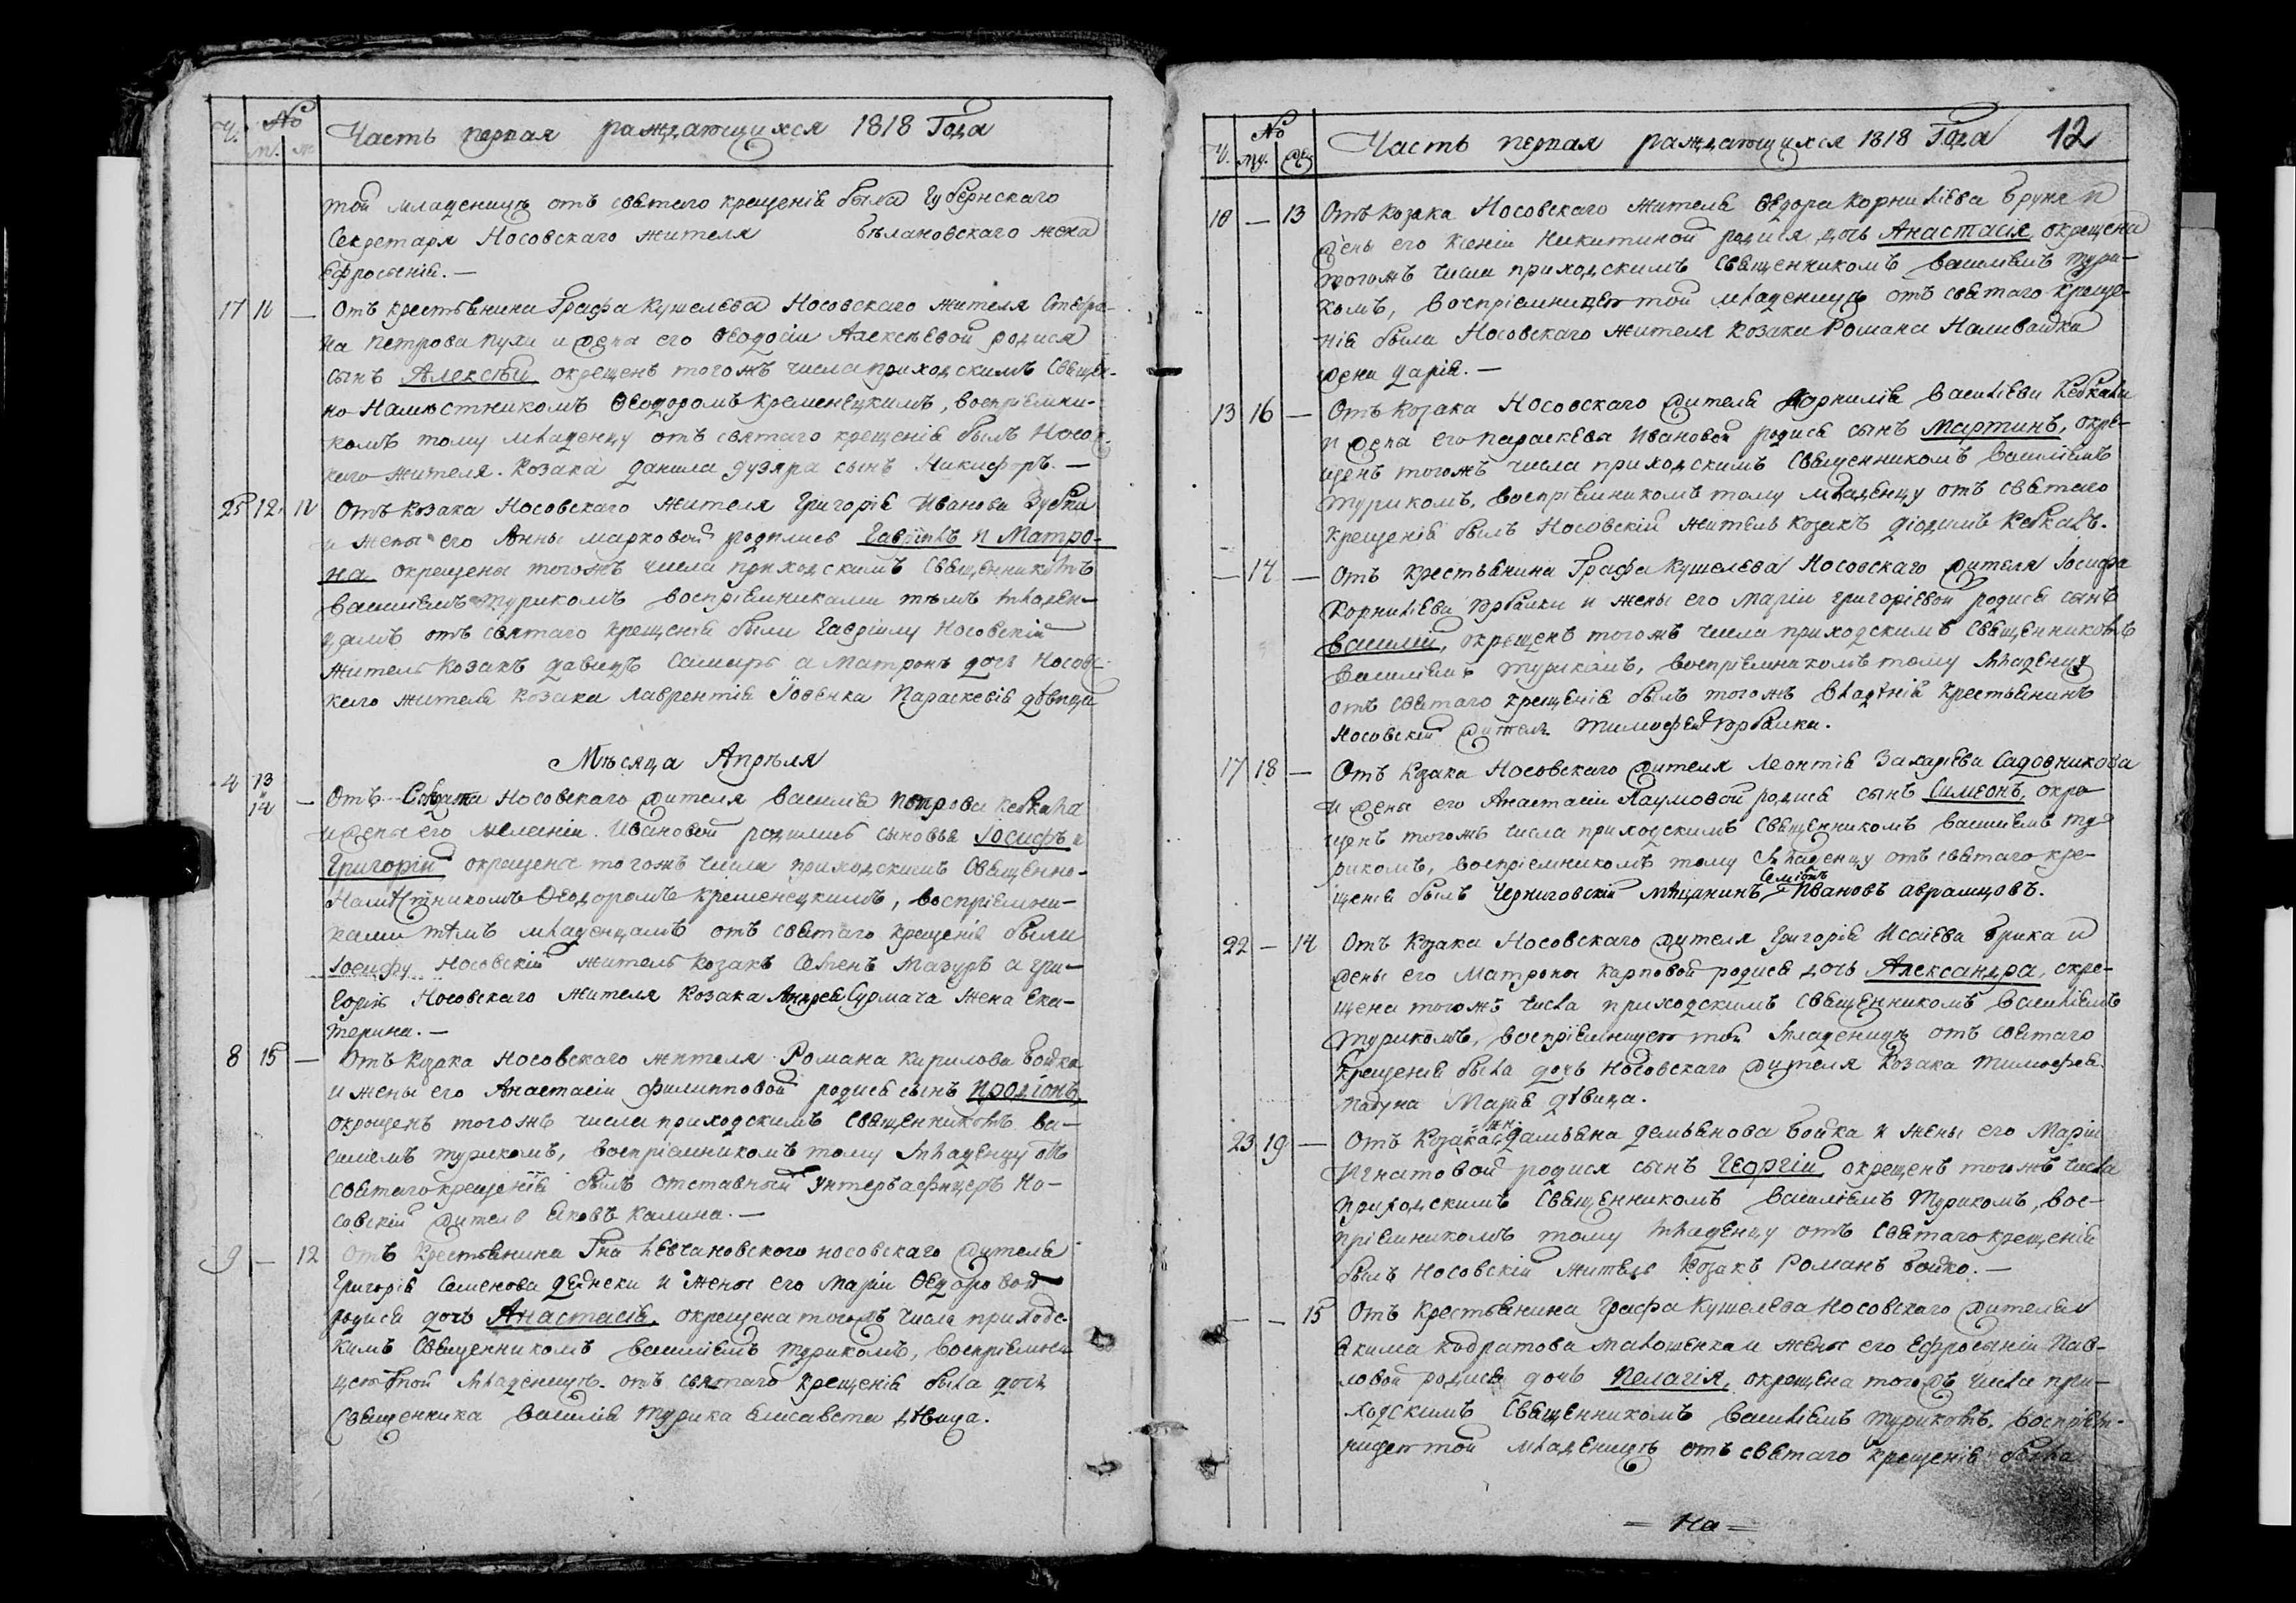 Ч. № м. ж
Часть первая раждающихся 1818 Года
той младеницѣ отъ святаго крещенія была Губернскаго
Секретаря Носовскаго жителя Бѣлановскаго жена
Ефросинія. —
17 11 — Отъ крестьянина Графа Кушелева Носовскаго жителя Стефа-
на Петрова Пухи и жены его Ѳеодосіи Алексѣевой родился
сынъ Алексѣй окрещенъ тогожъ числа приходскимъ Священ-
но Намѣстникомъ Ѳеодоромъ Кременецкимъ, воспріемни-
комъ тому младенцу отъ святаго крещенія былъ Носов-
каго жителя козака Данила Дузяра сынъ Никифоръ. —
25 12 11 Отъ козака Носовскаго жителя Григорія Иванова Зубка
и жены его Анны Марковой родились Гавріилъ и Матро-
на окрещены тогожъ числа приходскимъ Священникомъ
Василіемъ Турикомъ воспріемниками тѣмъ младен-
цамъ отъ святаго крещенія были Гавріилу Носовскій
житель козакъ Давидъ Самаръ а Матронѣ дочь Носовс-
каго жителя козака Лаврентія Параскевія дѣвица
Мѣсяца Апрѣля
4 13 и 14 — Отъ Носовскаго жителя Василія Петрова Кебкала
и жены его Меланіи Ивановой родились сыновья Іосифъ и
Григорій окрещены тогожъ числа приходскимъ Священно-
Намѣстникомъ Ѳеодоромъ Кременецкимъ, воспріемни-
ками тѣмъ младенцамъ отъ святаго крещенія были
Іосифу Носовскій житель козакъ Семенъ Мазуръ а Гри-
горію Носовскаго жителя козака Андрея Сурмача жена Ека-
терина. —
8 15 — Отъ козака Носовскаго жителя Романа Кирилова Бойка
и жены его Анастасіи Филипповой родился сынъ Иродіонъ,
окрещенъ тогожъ числа приходскимъ Священникомъ Ва-
силіемъ Турикомъ, воспріемникомъ тому младенцу отъ
святаго крещенія былъ отставный унтеръ афицеръ Но-
совскій житель Яковъ Калина. —
9 — 12 Отъ крестьянина Гна Левчановского носовскаго жителя
Григорія Семенова Дейнеки и жены его Маріи Ѳедоровой
родися дочь Анастасія, окрещена тогожъ числа приходс-
кимъ Священникомъ Василіемъ Турикомъ, воспріемни-
цею той младеницѣ отъ святаго крещенія была дочь
Священника Василія Турика Елисавета дѣвица.
Ч. № му. же
Часть первая раждающихся 1818 Года 12
10 — 13 Отъ козака Носовскаго жителя Ѳедора Корниліева Бруня и
жены его Ксеніи Никитиной родися дочь Анастасія окрещена
тогожъ числа приходскимъ Священникомъ Василіемъ Тури-
комъ, воспріемницею той младеницѣ отъ святаго креще-
нія была Носовскаго жителя козака Романа Наливайка
жена Дарія. —
13 16 — Отъ козака Носовскаго жителя Корнилія Василіева Кебкала
и жены его Параскевы Ивановой родися сынъ Мартинъ, окре-
щенъ тогожъ числа приходскимъ Священникомъ Василіемъ
Турикомъ, воспріемникомъ тому младенцу отъ святаго
крещенія былъ Носовскій житель козакъ Діодимъ Кебкалъ.
— 17 — Отъ крестьянина Графа Кушелева Носовскаго жителя Іосифа
Корниліева и жены его Маріи Григоріевой родися сынъ
Василій, окрещенъ тогожъ числа приходскимъ Священникомъ
Василіемъ Турикомъ, воспріемникомъ тому младенцу
отъ святаго крещенія былъ тогожъ владѣнія крестьянинъ
Носовскій житель Тимофей
17 18 — Отъ козака Носовскаго жителя Леонтія Захаріева Садовникова
и жены его Анастасіи Наумовой родися сынъ Симеонъ, окре-
щенъ тогожъ числа приходскимъ Священникомъ Василіемъ Ту-
рикомъ, воспріемникомъ тому младенцу отъ святаго кре-
щенія былъ Черниговскій мѣщанинъ Ивановъ Аврамцовъ.
22 — 14 Отъ козака Носовскаго жителя Григорія Исаіева Брика и
жены его Матроны Карповой родися дочь Александра, окре-
щена тогожъ числа приходскимъ Священникомъ Василіемъ
Турикомъ, воспріемницею той младеницѣ отъ святаго
крещенія была дочь Носовскаго жителя козака Тимофея
Падуна Марія дѣвица.
23 19 — Отъ козака Дамьяна Демьянова Бойка и жены его Маріи
Игнатовой родися сынъ Георгій окрещенъ тогожъ числа
приходскимъ Священникомъ Василіемъ Турикомъ, вос-
пріемникомъ тому младенцу отъ святаго крещенія
былъ Носовскій житель козакъ Романъ Бойко. —
— — 15 Отъ крестьянина Графа Кушелева Носовскаго жителя
Екима Кодратова Малошенка и жены его Ефросиніи Пав-
ловой родися дочь Пелагія, окрещена тогожъ числа при-
ходскимъ Священникомъ Василіемъ Турикомъ, воспріем-
ницею той младеницѣ отъ святаго крещенія была
= На =